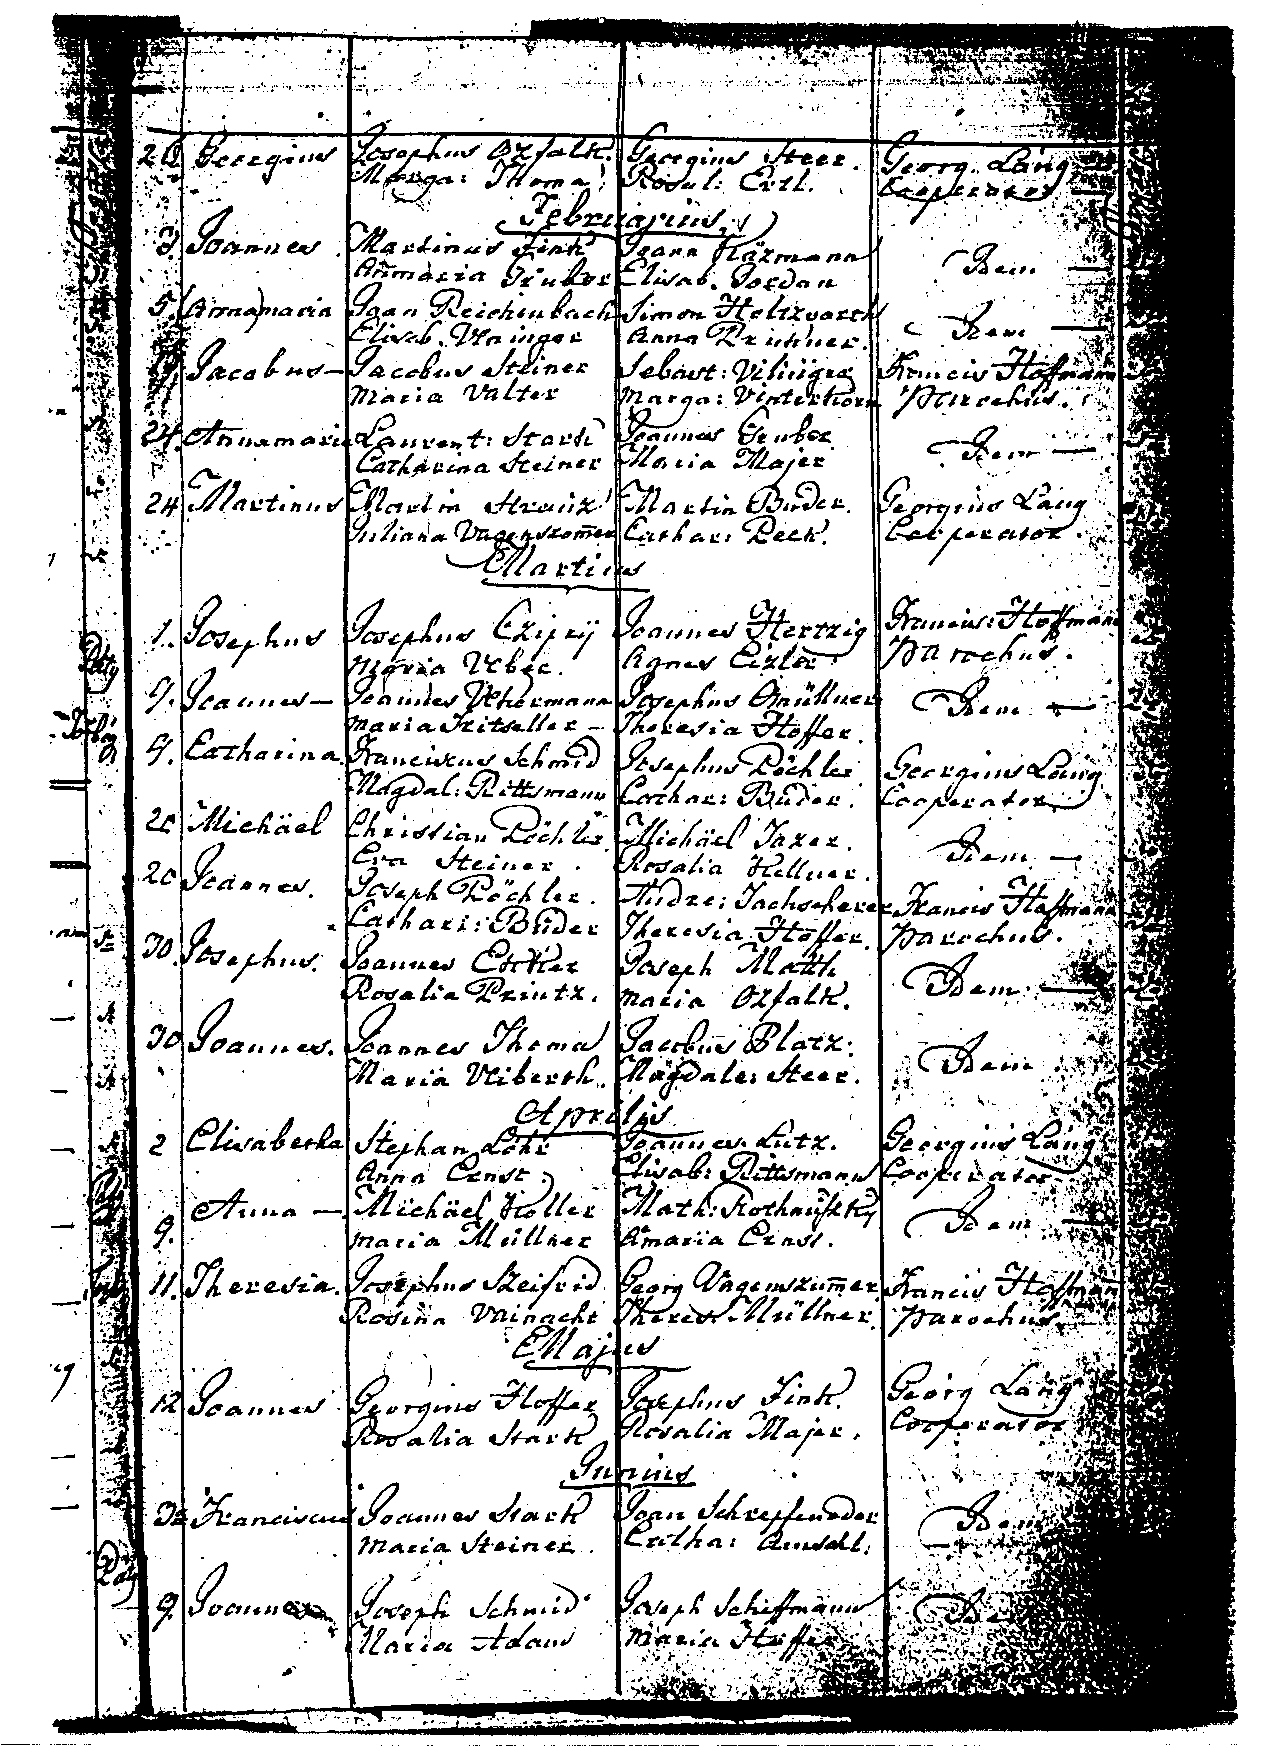 Georgius Josephus Ozfalk. Georgius Steer. Georg. Läng
Marga: Thoma. Rosal: Ertl. Cooperator
Februarius.
3. Joannes. Martinus Fink Joann Häzmann Idem —
Annamaria Gruber Elisab. Jordan
5. Annamaria Joan Reichenbach Simon Holtzvarth Idem —
Elisab. Vainger Anna Printner.
Jacobus — Jacobus Steiner Sebast: Francis Hoffmann
Maria Valter Marga: Vinterhorn Parochus.
24. Annamaria Laurent: Stark Joannes Gruber Idem —
Catharina Steiner Maria Majer
24 Martinus Martin Strauz Martin Buder. Georgius Läng
Juliana Vagenszomer Cathar: Peck. Cooperator.
Martius
1. Josephus Josephus Czipry Joannes Hertzig Francis: Hoffmann
Maria Veber. Agnes Eixler Parochus.
9. Joannes — Joannes Ukermann Josephus Gmüllner Idem —
Maria Tritseller — Theresia Hoffer.
9. Catharina Franciscus Schmid Josephus Pöchler Georgius Läng
Magdal: Rittsmann Cathar: Buder. Cooperator
20 Michäel Christian Pöchler Michäel Taxer. Idem —
Eva Steiner. Rosalia Kellner.
20 Joannes. Joseph Pöchler. Andre: Sachscherer Francis Hoffmann
Cathari: Buder Theresia Hoffer. Parochus.
30. Josephus. Joannes Ecker Joseph Math Idem —
Rosalia Printz. Maria Ozfalk.
30 Joannes. Joannes Thoma Jacobus Platz. Idem
Maria Viberth. Magdale: Steer.
Aprilis
2 Elisabetha Stephan Löhr Joannes Lutz. Georgius Läng
Anna Ernst. Elisab: Rittsmann Cooperator
Anna — Michäel Koller Math: Idem —
9. Maria Müllner Amaria Ernst.
11. Theresia. Josephus Szeifrid Georg Vagenszumer Francis Hoffman
Rosina Vainacht Theres: Müllner Parochus.
Majus
12 Joannes Georgius Hoffer Josephus Fink. Georg Läng
Rosalia Stark Rosalia Majer. Cooperator
Junius
Franciscus Joannes Stark Joan Schrepfeneder Idem
Maria Steiner. Catha: Amsall.
9. Joannes Joseph Schmid Joseph Schiffmann
Maria Adam Maria Hoffer